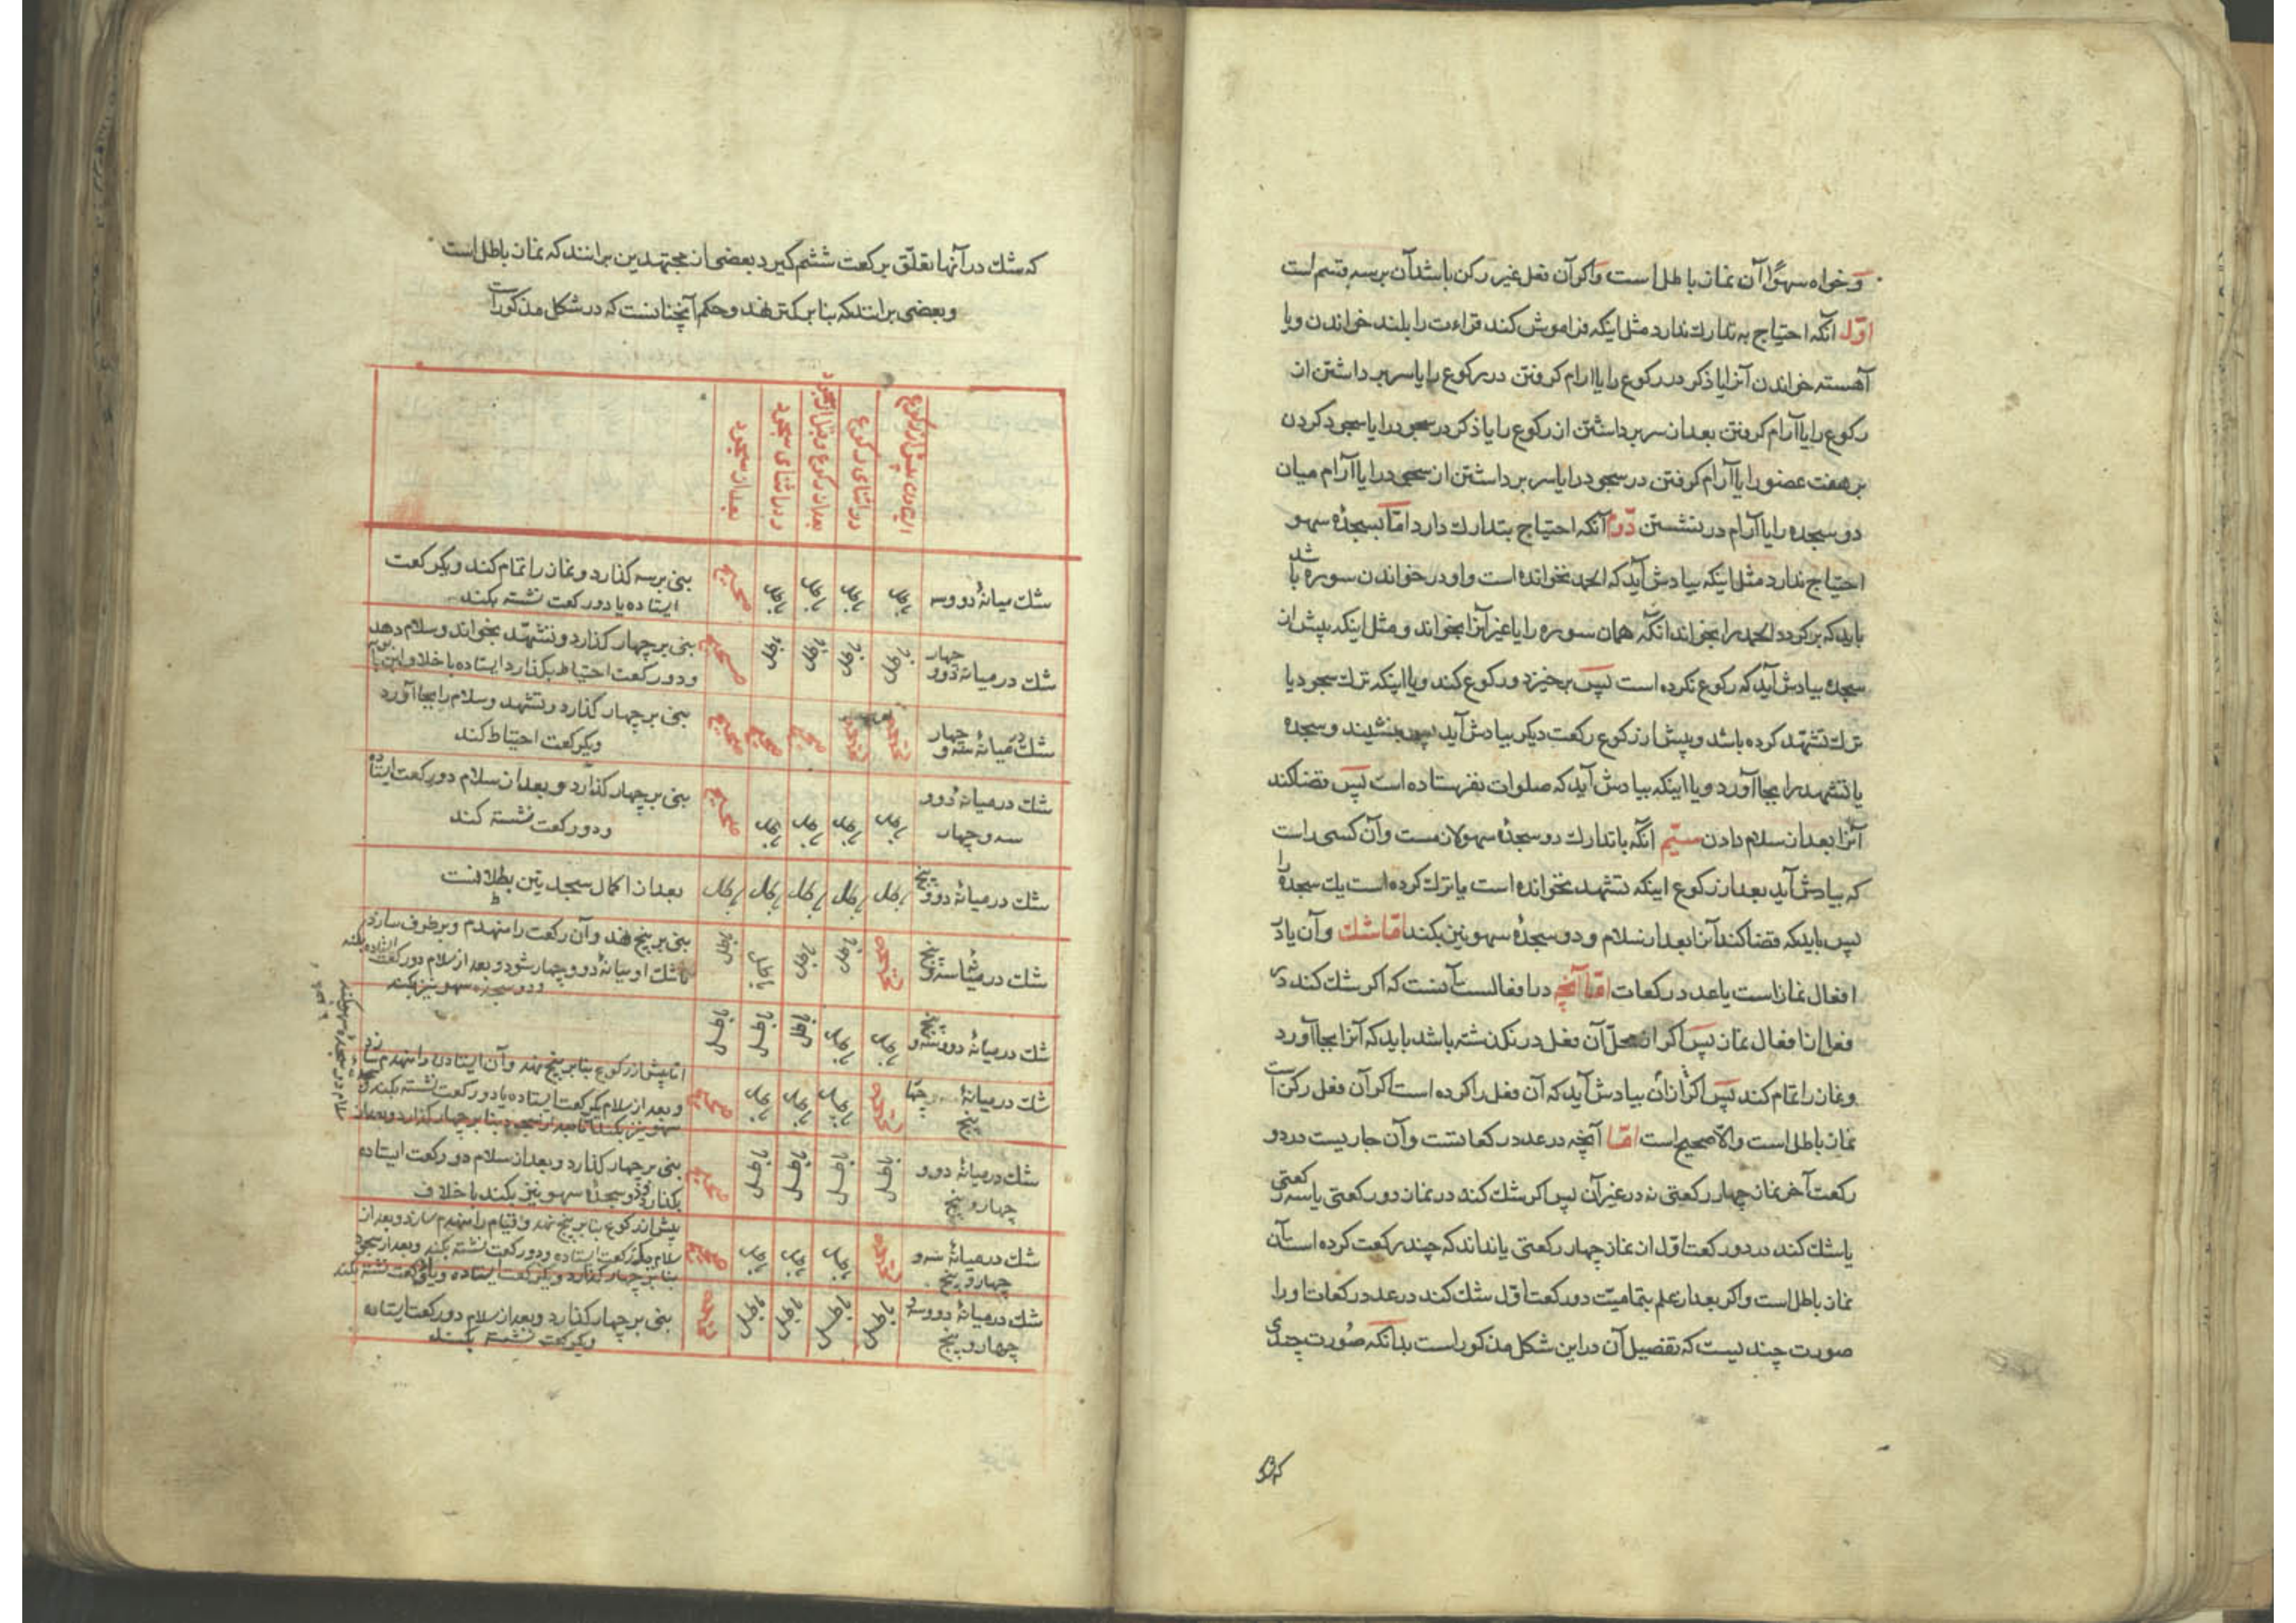 و خواه سهوًا آن نماز باطل است و اکر آن فعل غیر رکن باشد آن بر سه قسم است
اوّل آنکه احتیاج به تدارك ندارد مثل اینکه فراموش کند قراءت را بلند خواندن و یا
آهسته خواندن آنرا یا ذکر در رکوع را یا ارام کرفتن در رکوع را یا سر بر داشتن از
رکوع را یا آرام کرفتن بعد از سر بر داشتن از رکوع را یا ذکر در سجود را یا سجود کردن
بر هفت عضو را یا آرام کرفتن در سجود را یا سر بر داشتن از سجود را یا آرام میان
دو سجده را یا آرام در نشستن دوّم آنکه احتیاج بتدارك دارد امّا بسجدهٔ سهو
احتیاج ندارد مثل اینکه بیادش آید که الحمد نخوانده است و او در خواندن سوره باشد
باید که برکردد الحمد را بخواند انکه همان سوره را یا غیر آنرا بخواند و مثل اینکه پیش از
سجده بیادش آید که رکوع نکرده است پس برخیزد و رکوع کند و یا اینکه ترك سجود یا
ترك تشهّد کرده باشد و پیش از رکوع رکعت دیکر بیادش آید پس بنشیند و سجده
یا تشهد را بجا آورد و یا اینکه بیادش آید که صلوات نفرستاده است پس قضا کند
آنرا بعد از سلام دادن سیّم انکه با تدارك دو سجدهٔ سهو لازمست و آن کسی راست
که بیادش آید بعد از رکوع اینکه تشهد نخوانده است یا ترك کرده است یك سجده را
پس باید که قضا کند آنرا بعد از سلام و دو سجدهٔ سهو نیز بکند امّا شك و آن یا در
افعال نماز است یا عدد رکعات امّا آنچه در افعالست آنست که اکر شك کند در
فعل از افعال نماز پس اکر از محل آن فعل در نکذشته باشد باید که آنرا بجا آورد
و نماز را تمام کند پس اکر از آن بیادش آید که آن فعل را کرده است اکر آن فعل رکن است
نماز باطل است و الّا صحیح است امّا آنچه در عدد رکعاتست و آن جاریست در دو
رکعت آخر نماز چهار رکعتی نه در غیر آن پس اکر شك کند در نماز دو رکعتی یا سه رکعتی و
یا شك کند در دو رکعت اوّل از نماز چهار رکعتی یا نداند که چند رکعت کرده است آن
نماز باطل است و اکر بعد از علم بتمامیّت دو رکعت اوّل شك کند در عدد رکعات او را
صورت چندیست که تفصیل آن در این شکل مذکور است بدانکه صورت چندی
که شك
که شك در آنها تعلّق برکعت ششم کیرد بعضی از مجتهدین برانند که نماز باطل است
و بعضی برانند که بنا بر کمتر نهند و حکم آنچنانست که در شکل مذکور است
ایستادن پیش از رکوع
در اثنای رکوع
بعد از رکوع و قبل از سجود
و در اثنای سجود
بعد از سجود
شك میانهٔ دو و سه باطل باطل باطل باطل صحیح بنی بر سه کذارد و نماز را تمام کند و یکرکعت
ایستاده یا دو رکعت نشسته بکند
شك در میانهٔ دو و چهار باطل باطل باطل باطل صحیح بنی بر چهار کذارد و تشهّد بخواند و سلام دهد
و دو رکعت احتیاط بکذارد ایستاده با خلاف
شك در میانهٔ سه و چهار صحیح صحیح صحیح بنی بر چهار کذارد و تشهد و سلام را بجا آورد
و یکرکعت احتیاط کند
شك در میانهٔ دو و باطل باطل باطل باطل صحیح بنی بر چهار کذارد و بعد از سلام دو رکعت ایستاده
سه و چهار و دو رکعت نشسته کند
شك در میانهٔ دو و پنج باطل باطل باطل باطل باطل بعد از اکمال سجدیتین بطلانست
شك در میانهٔ سه و پنج باطل باطل باطل باطل بنی بر پنج نهند و آن رکعت را منهدم و بر طرف سازد
تا شك او میانهٔ دو و چهار شود و بعد از سلام دو رکعت ایستاده بکند
و دو سجده سهو نیز بکند
شك در میانهٔ دو و سه و پنج باطل باطل باطل باطل باطل
شك در میانهٔ چهار پنج باطل باطل باطل صحیح اما پیش از رکوع بنا بر پنج نهد و آن ایستادن را منهدم سازد
و بعد از سلام یکرکعت ایستاده یا دو رکعت نشسته بکند و سجدهٔ
سهو نیز بکند امّا بعد از سجود بنا بر چهار کذارد و بعد از
سلام دو سجدهٔ سهو بکند
شك در میانهٔ دو و باطل باطل باطل باطل صحیح بنی بر چهار کذارد و بعد از سلام دو رکعت ایستاده
چهار و پنج بکذارد و دو سجدهٔ سهو نیز بکند با خلاف
شك در میانهٔ سه و باطل باطل باطل صحیح پیش از رکوع بنا بر پنج نهد و قیام را منهدم سازد و بعد از
چهار و پنج سلام دو رکعت ایستاده و دو رکعت نشسته بکند و بعد از سجود
بنا بر چهار کذارد و یکرکعت ایستاده و یا دو رکعت نشسته بکند
شك در میانهٔ دو و سه و باطل باطل باطل باطل بنی بر چهار کذارد و بعد از سلام دو رکعت ایستاده
چهار و پنج و یکرکعت نشسته بکند